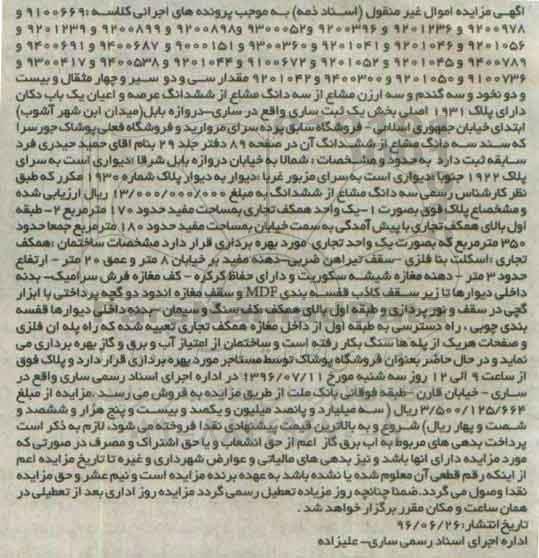 آگهی مزایده اموال غیر منقول (اسناد ذمه) به موجب پرونده های اجرائی کلاسه :۹۱۰۰۶۶۹ و
۹۲۰۰۹۷۸ و ۹۲۰۱۲۳۶ و ۹۲۰۰۳۹۶ و ۹۳۰۰۰۵۲ و ۹۲۰۰۸۹۸ و ۹۲۰۰۸۹۹ و ۹۲۰۱۲۳۹ و
۹۲۰۱۰۵۶ و ۹۲۰۱۰۴۶ و ۹۲۰۱۰۴۱ و ۹۳۰۰۳۶۰ و ۹۰۰۰۱۵۱ و ۹۴۰۰۶۸۷ و ۹۴۰۰۶۹۱ و
۹۴۰۰۷۸۹ و ۹۲۰۱۰۴۵ و ۹۲۰۱۰۵۲ و ۹۱۰۰۶۷۲ و ۹۲۰۱۰۴۴ و ۹۴۰۰۵۳۸ و ۹۳۰۰۴۱۷ و
۹۱۰۰۷۳۶ و ۹۲۰۱۰۵۰ و ۹۴۰۰۳۰۰ و ۹۲۰۱۰۴۲ مقدار سی و دو سیر و چهار مثقال و بیست
و دو نخود و سه گندم و سه ارزن مشاع از سه دانگ مشاع از ششدانگ عرصه و اعیان یک باب دکان
دارای پلاک ۱۹۳۱ اصلی بخش یک ثبت ساری واقع در ساری-دروازه بابل(میدان ابن شهر آشوب)
ابتدای خیابان جمهوری اسلامی - فروشگاه سابق پرده سرای مروارید و فروشگاه فعلی پوشاک جورسرا
که سند سه دانگ مشاع از ششدانگ آن در صفحه ۸۹ دفتر جلد ۲۹ بنام آقای حمید حیدری فرد
سابقه ثبت دارد به حدود و مشخصات : شمالا به خیابان دروازه بابل شرقا :دیواری است به سرای
پلاک ۱۹۲۲ جنوبا :دیواری است به سرای مزبور غربا :دیوار به دیوار پلاک شماره ۱۹۳۰ مکرر که طبق
نظر کارشناس رسمی سه دانگ مشاع از ششدانگ به مبلغ ۱۳/۰۰۰/۰۰۰/۰۰۰ ریال ارزیابی شده
و مشخصاع پلاک فوق بصورت ۱-یک واحد همکف تجاری بمساحت مفید حدود ۱۷۰ مترمربع ۲-طبقه
اول بالای همکف تجاری با پیش آمدگی به سمت خیابان بمساحت مفید حدود ۱۸۰ مترمربع جمعا حدود
۳۵۰ مترمربع که بصورت یک واحد تجاری مورد بهره برداری قرار دارد مشخصات ساختمان :همکف
تجاری :اسکلت بنا فلزی -سقف تیرآهن ضربی-دهنه مفید بر خیابان ۸ متر و عمق ۲۰ متر - ارتفاع
حدود ۳ متر - دهنه مغازه شیشه سکوریت و دارای حفاظ کرکره - کف مغازه فرش سرامیک- بدنه
داخلی دیوارها تا زیر سقف کاذب قفسه بندی MDF و سقف مغازه اندود دو گچه پرداختی با ابزار
گچی در سقف و نورپردازی و طبقه اول بالای همکف :کف سنگ و سیمان -بدنه داخلی دیوارها قفسه
بندی چوبی ، راه دسترسی به طبقه اول از داخل مغازه همکف تجاری تعبیه شده که راه پله آن فلزی
و صفحات هریک از پله ها سنگ بکار رفته است و ساختمان از امتیاز آب و برق و گاز بهره برداری می
نماید و در حال حاضر بعنوان فروشگاه پوشاک توسط مستاجر مورد بهره برداری قرار دارد و پلاک فوق
از ساعت ۹ الی ۱۲ روز سه شنبه مورخ ۱۳۹۶/۰۷/۱۱ در اداره اجرای اسناد رسمی ساری واقع در
ساری - خیابان قارن -طبقه فوقانی بانک ملت از طریق مزایده به فروش می رسد .مزایده از مبلغ
۳/۵۰۰/۱۲۵/۶۶۴ ریال ( سه میلیارد و پانصد میلیون و یکصد و بیست و پنج هزار و ششصد و
شصت و چهار ریال) شروع و به بالاترین قیمت پیشنهادی نقدا فروخته می شود. لازم به ذکر است
پرداخت بدهی های مربوط به آب برق گاز اعم از حق انشعاب و یا حق اشتراک و مصرف در صورتی که
مورد مزایده دارای آنها باشد و نیز بدهی های مالیاتی و عوارض شهرداری و غیره تا تاریخ مزایده اعم
از اینکه رقم قطعی آن معلوم شده یا نشده باشد به عهده برنده مزایده است و نیم عشر و حق مزایده
نقدا وصول می گردد. ضمنا چنانچه روز مزیاده تعطیل رسمی گردد مزایده روز اداری بعد از تعطیلی در
همان ساعت و مکان مقرر برگزار خواهد شد .
تاریخ انتشار:۹۶/۰۶/۲۶
اداره اجرای اسناد رسمی ساری- علیزاده